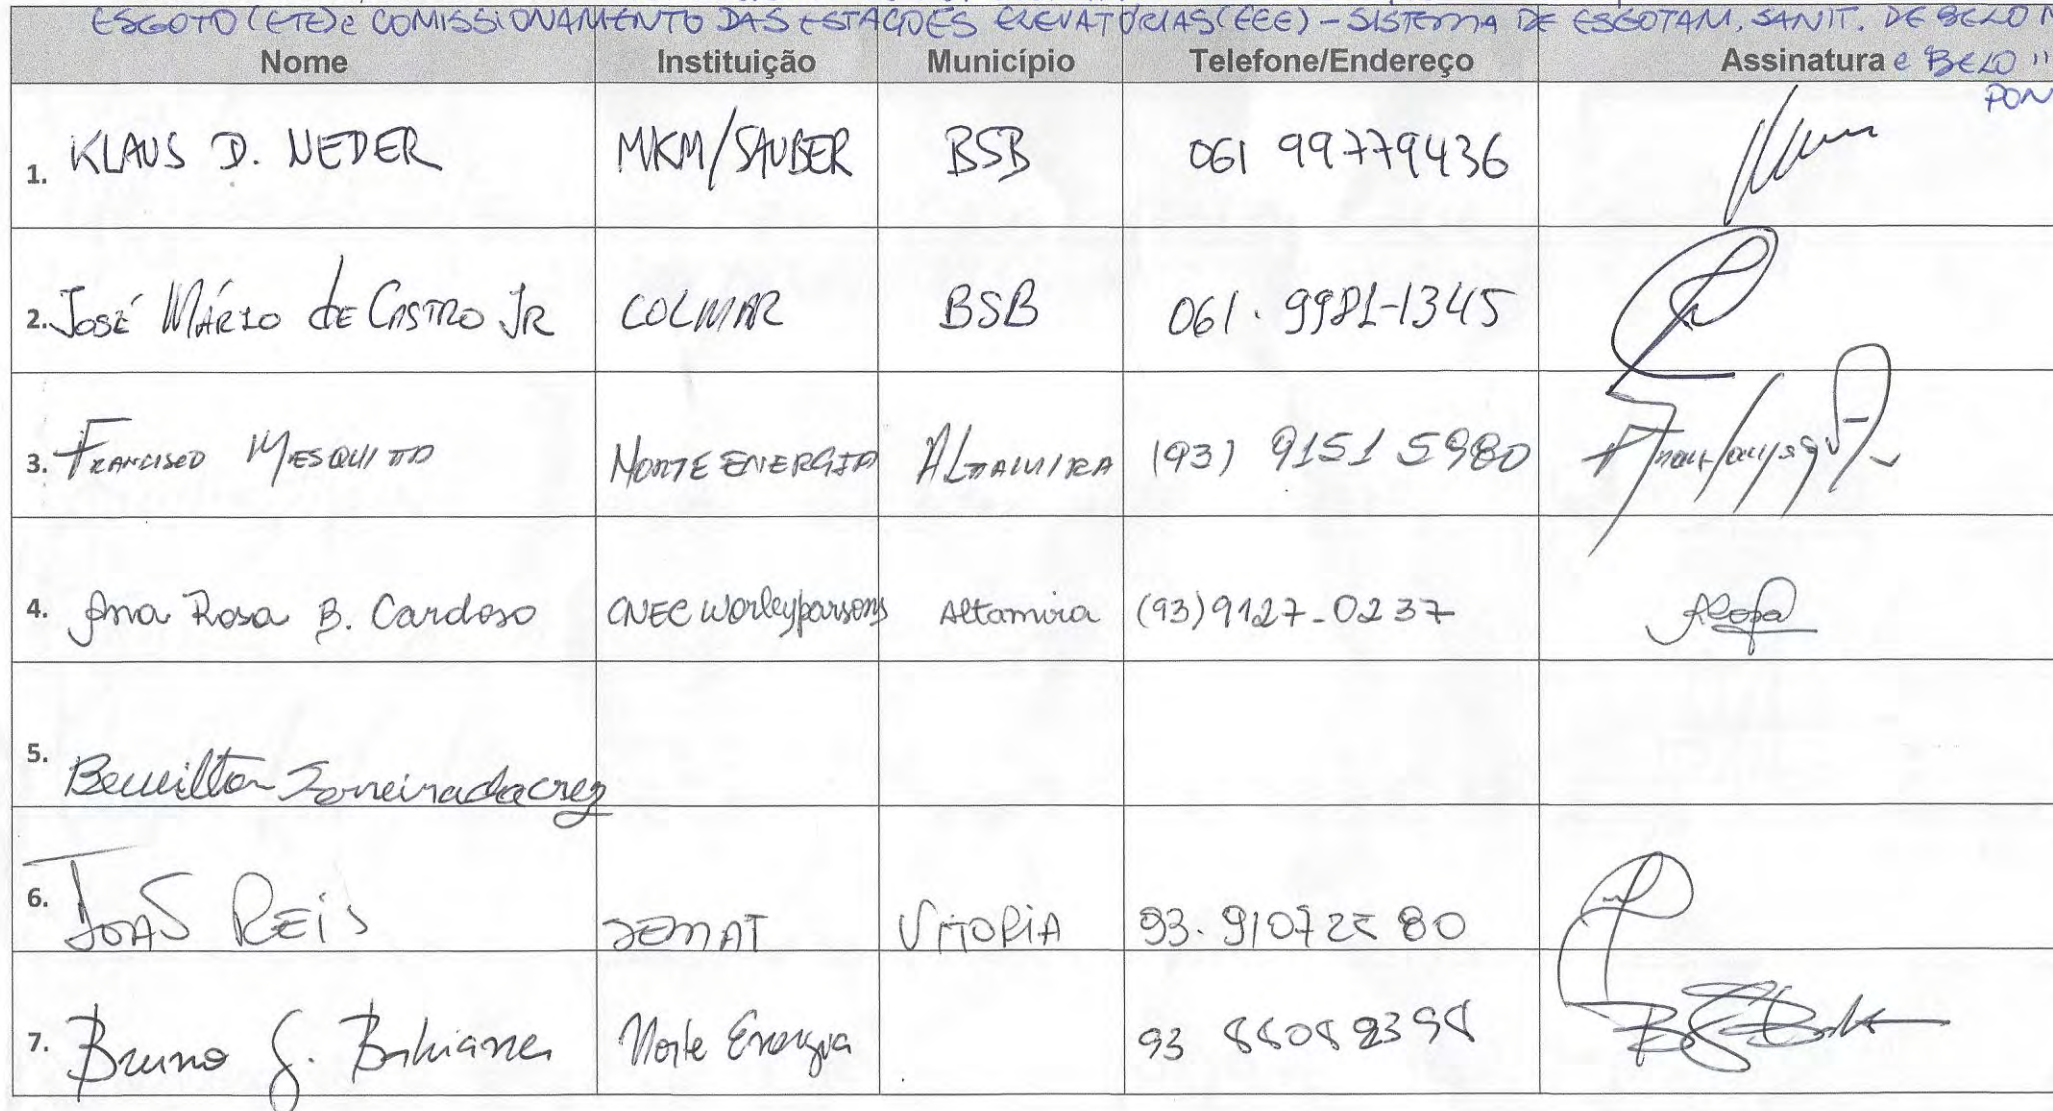 ESGOTO (ETE) e COMISSIONAMENTO DAS ESTAÇÕES ELEVATÓRIAS (EEE) - SISTEMA DE ESGOTAM. SANIT. DE BELO M
Nome Instituição Município Telefone/Endereço Assinatura e BELO "
PON
1. KLAUS D. NEDER MKM/SAUBER BSB 061 99779436
2. JOSÉ MÁRIO DE CASTRO JR COLMAR BSB 061. 9981-1345
3. FRANCISCO MESQUITA NORTE ENERGIA ALTAMIRA (93) 9151 5980
4. Ana Rosa B. Cardoso CNEC Worleyparsons Altamira (93) 9127-0237 ARosa
5.
6. JOAS REIS VITORIA
7. Bruno G. Bahiana Norte Energia 93